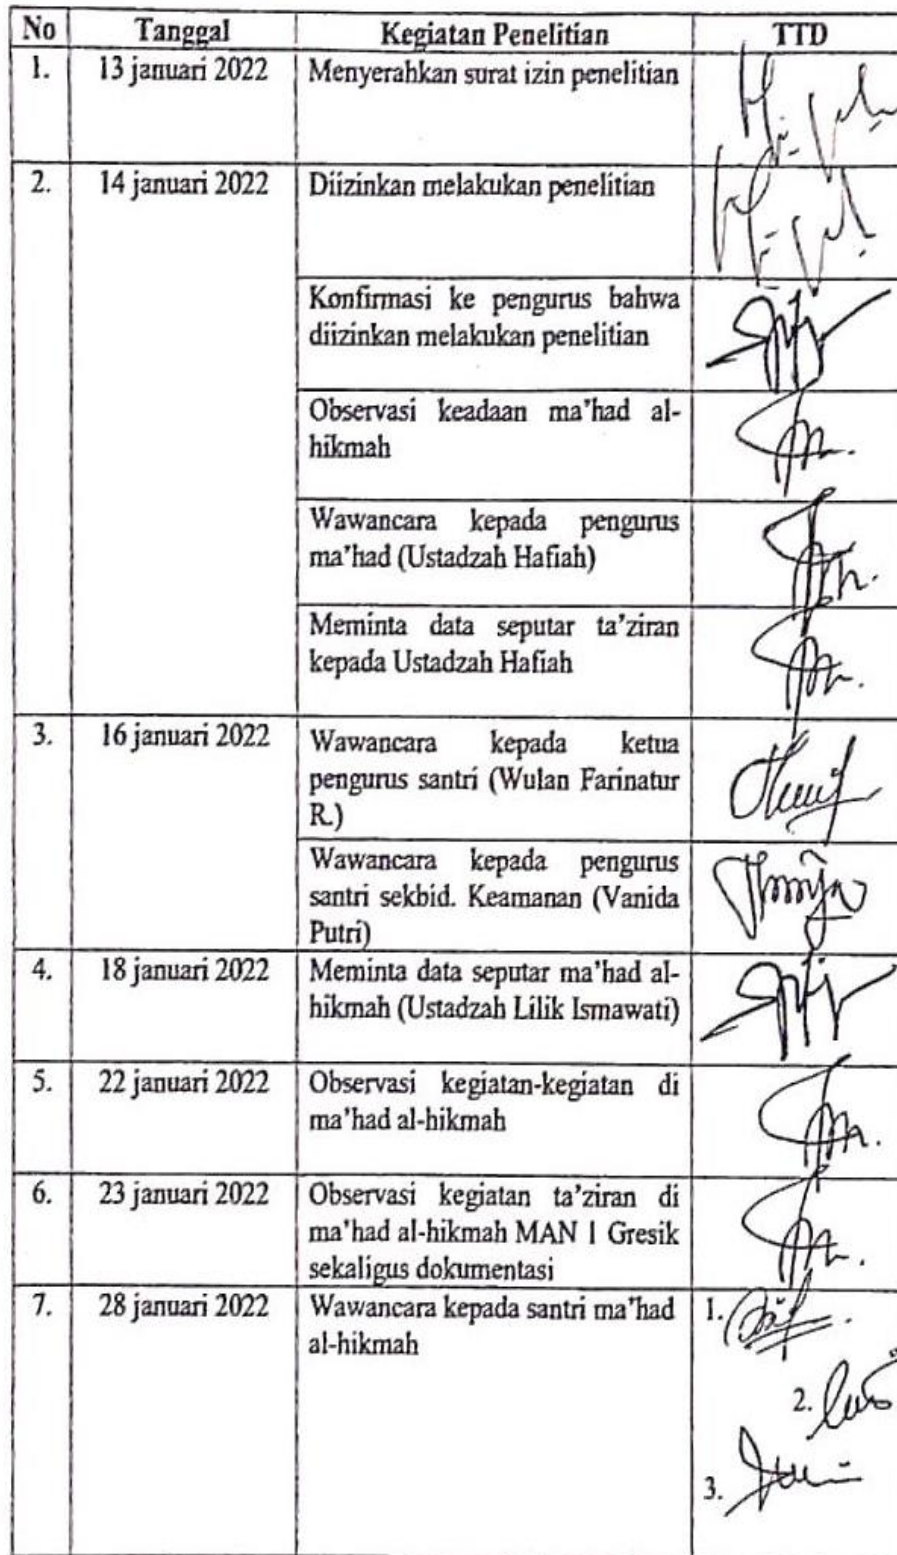 No Tanggal Kegiatan Penelitian TTD
1. 13 januari 2022 Menyerahkan surat izin penelitian
2. 14 januari 2022 Diizinkan melakukan penelitian
Konfirmasi ke pengurus bahwa
diizinkan melakukan penelitian
Observasi keadaan ma'had al-
hikmah
Wawancara kepada pengurus
ma'had (Ustadzah Hafiah)
Meminta data seputar ta'ziran
kepada Ustadzah Hafiah
3. 16 januari 2022 Wawancara kepada ketua
pengurus santri (Wulan Farinatur
R.)
Wawancara kepada pengurus
santri sekbid. Keamanan (Vanida
Putri)
4. 18 januari 2022 Meminta data seputar ma'had al-
hikmah (Ustadzah Lilik Ismawati)
5. 22 januari 2022 Observasi kegiatan-kegiatan di
ma'had al-hikmah
6. 23 januari 2022 Observasi kegiatan ta'ziran di
ma'had al-hikmah MAN 1 Gresik
sekaligus dokumentasi
7. 28 januari 2022 Wawancara kepada santri ma'had 1.
al-hikmah
2.
3.